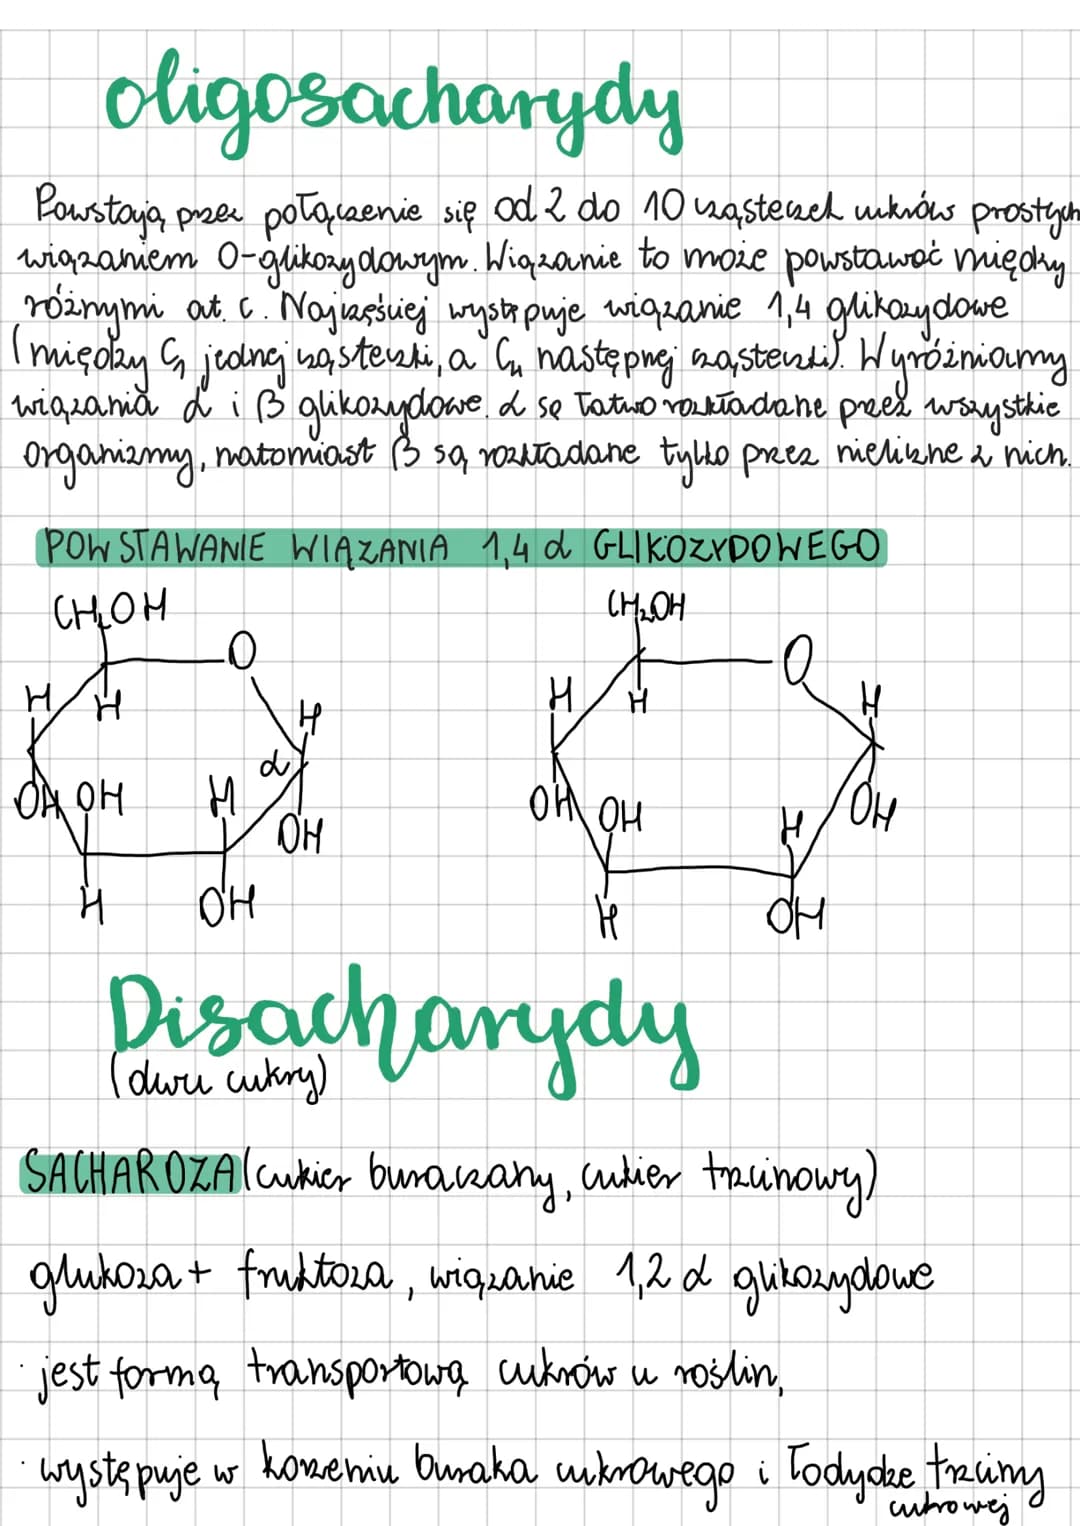 oligosacharydy
Powstają przez połączenie się od 2 do 10 cząsteczek cukrów prostych
wiązaniem O-glikozydowym. Wiązanie to może powstawać między
różnymi at. C. Najczęściej występuje wiązanie 1,4 glikozydowe
(między C₁ jednej cząsteczki, a C₄ następnej cząsteczki). Wyróżniamy
wiązania α i β glikozydowe. α są łatwo rozkładane przez wszystkie
organizmy, natomiast β są rozkładane tylko przez nieliczne z nich.
POWSTAWANIE WIĄZANIA 1,4 α GLIKOZYDOWEGO
CH₂OH CH₂OH
O O
H H H H H H
α
OH OH H OH OH OH H OH
H OH H OH
Disacharydy
(dwu cukry)
SACHAROZA (cukier buraczany, cukier trzcinowy)
glukoza + fruktoza, wiązanie 1,2 α glikozydowe
· jest formą transportową cukrów u roślin,
· występuje w korzeniu buraka cukrowego i łodydze trzciny
cukrowej